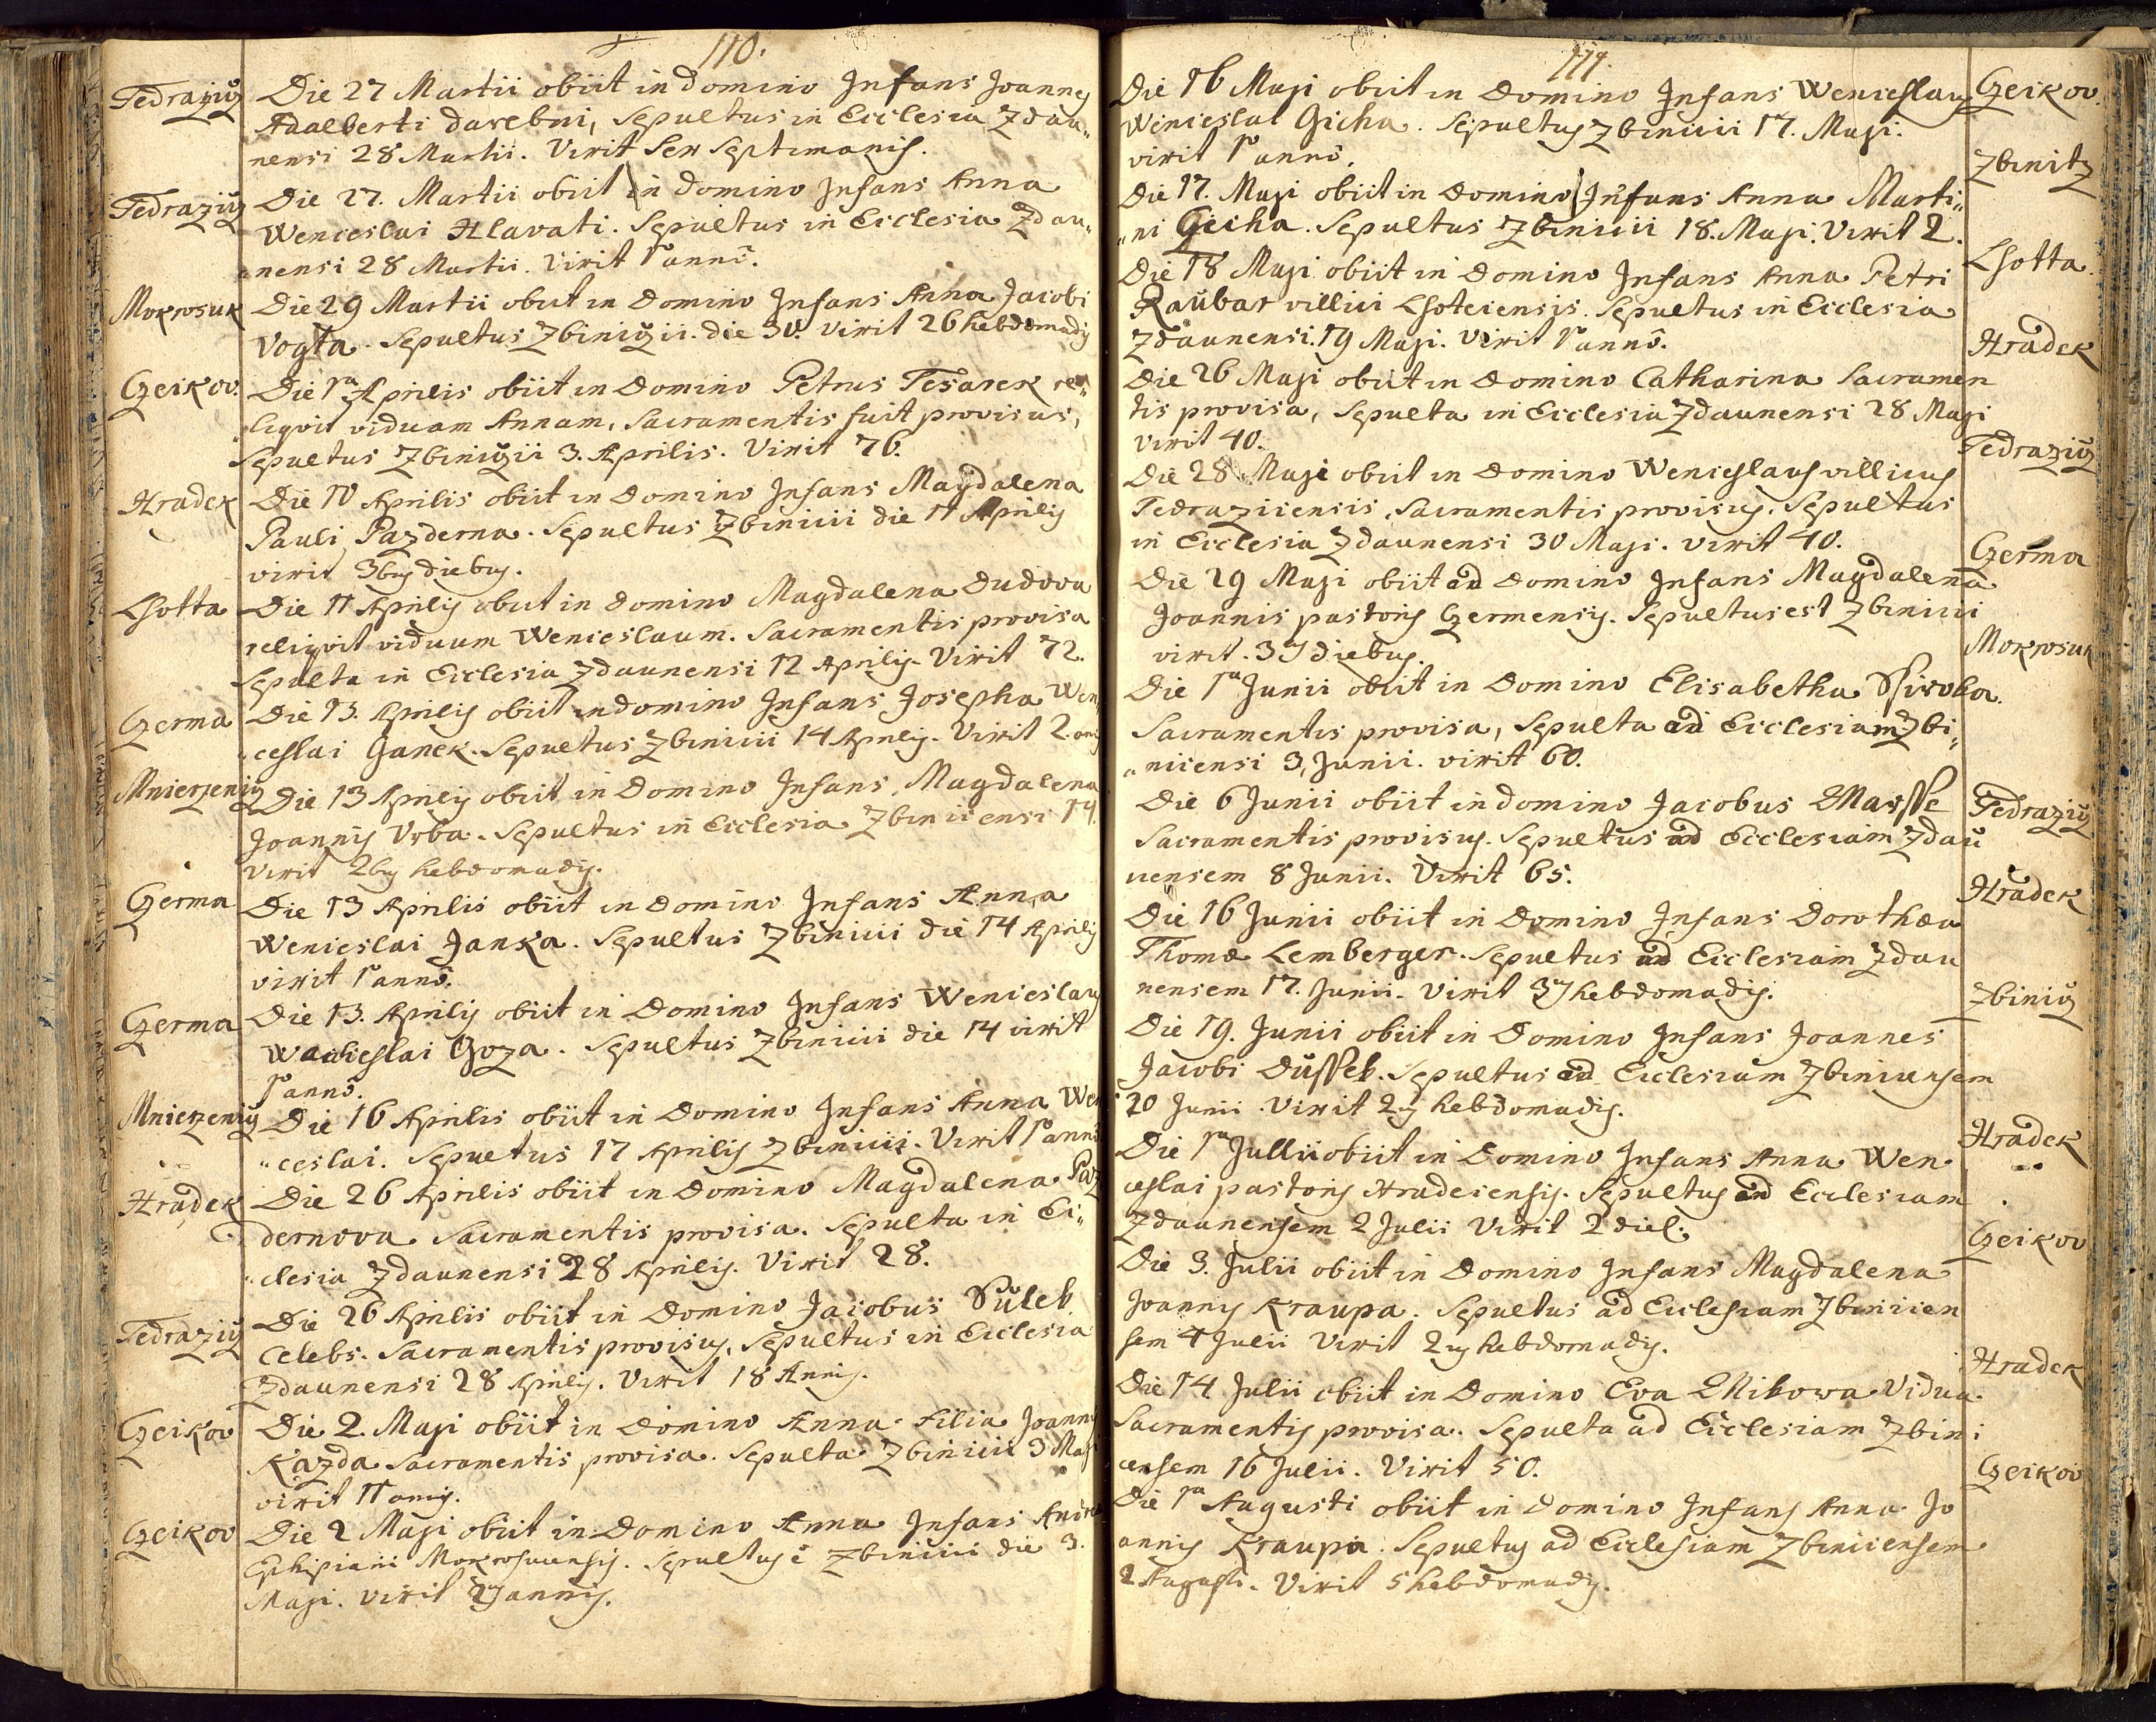 110.
Tedraziz Die 27 Martii obiit in Domino Infans Joannes
Adalberti darebni, Sepultus in Ecclesia Zdau„
nensi 28 Martii. Vixit Sex Septimanis.
Tedraziz Die 27. Martii obiit in Domino Infans Anna
Wenceslai Hlavati. Sepultus in Ecclesia Zdau„
nensi 28 Martii. Vixit 1 anno.
Mokrosuk Die 29 Martii obiit in Domino Infans Anna Jacobi
Vogta. Sepultus Zbinizii. die 30. vixit 26 hebdomadis
Czeikov. Die 1ma Aprilis obiit in Domino Petrus Tesarek re„
liqvit viduam Annam, Sacramentis fuit provisus,
Sepultus Zbinizii 3. Aprilis. Vixit 76.
Hradek Die 10 Aprilis obiit in Domino Infans Magdalena
Pauli Pazderna. Sepultus Zbinicii die 11 Aprilis
vixit 3bus diebus.
Lhotta Die 11 Aprilis obiit in Domino Magdalena Dudova
reliqvit viduum Wenceslaum. Sacramentis provisa
Sepulta in Ecclesia Zdaunensi 12 Aprilis. Vixit 72.
Czerma Die 13. Aprilis obiit in domino Infans Josepha Wen„
„ceslai Ganek. Sepultus Zbinicii 14 Aprilis. Vixit 2. anis
Mnierzeniz Die 13 Aprilis obiit in Domino Infans Magdalena
Joannis Vrba. Sepultus in Ecclesia Zbinicensi 14.
Vixit 2bus hebdomadis.
Czerma Die 13 Aprilis obiit in Domino Infans Anna
Wenceslai Janka. Sepultus Zbinicii die 14 Aprilis
vixit 1 anno.
Czerma Die 13. Aprilis obiit in Domino Infans Wenceslaus
Wenceslai Goza. Sepultus Zbinicii die 14 vixit
1 anno.
Mnierzeniz Die 16 Aprilis obiit in Domino Infans Anna Wen
„ceslai. Sepultus 17 Aprilis Zbinicii. Vixit 1 anno
Hradek Die 26 Aprilis obiit in Domino Magdalena Paz
dernova Sacramentis provisa. Sepulta in Ec„
„clesia Zdaunensi 28 Aprilis. Vixit 28.
Tedraziz Die 26 Aprilis obiit in Domino Jacobus Sulek
Celebs. Sacramentis provisus, Sepultus in Ecclesia
Zdaunensi 28 Aprilis. Vixit 18 Annis.
Czeikov Die 2. Maji obiit in Domino Anna Filia Joannis
Kazda Sacramentis provisa. Sepulta Zbinicii 3 Maji
vixit 11 annis.
Czeikov Die 2 Maji obiit in Domino Anna Infans Andreæ
Mokrosucensis. Sepultus ē Zbinicii die 3.
Maji. vixit 2 annis.
111.
Die 16 Maji obiit in Domino Infans Wenceslaus Czeikov.
Wenceslai Gicha. Sepultus Zbinicii 17. Maji.
vixit 1 anno.
Die 17. Maji obiit in Domino Infans Anna Marti„ Zbinitz
„ni Gicha. Sepultus Zbinicii 18. Maji. Vixit 2.
Die 18 Maji obiit in Domino Infans Anna Petri Lhotta.
Raubar villici Lhotecensis. Sepultus in Ecclesia
Zdaunensi. 19 Maji. Vixit 1 anno.
Die 26 Maji obiit in Domino Catharina Sacramen Hradek
tis provisa, Sepulta in Ecclesia Zdaunensi 28 Maji
vixit 40.
Die 28 Maji obiit in Domino Wenceslaus villicus Tedraziz
Tedrazicensis, Sacramentis provisus. Sepultus
in Ecclesia Zdaunensi 30 Maji. vixit 40.
Die 29 Maji obiit ad Domino Infans Magdalena Czerma
Joannis pastoris Czermensis. Sepultus est Zbinicii
vixit. 3 diebus.
Die 1ma Junii obiit in Domino Elisabetha Ssiroka. Mokrosuk
Sacramentis provisa, Sepulta ad Ecclesiam Zbi„
„nicensi 3. Junii. vixit 60.
Die 6 Junii obiit in domino Jacobus Marsse Tedraziz
Sacramentis provisus. Sepultus ad Ecclesiam Zdau
nensem 8 Junii. Vixit 65.
Die 16 Junii obiit in Domino Infans Dorothæa Hradek
Thomæ Lemberger. Sepultus ad Ecclesiam Zdau
nensem 17. Junii. Vixit 3 hebdomadis.
Die 19. Junii obiit in Domino Infans Joannes Zbiniz
Jacobi Dussek. Sepultus ad Ecclesiam Zbinicensem
20 Junii. Vixit 2 hebdomadis.
Die 1ma Jullii obiit in Domino Infans Anna Wen Hradek
ceslai pastoris Hradecensis. Sepultus ad Ecclesiam
Zdaunensem 2 Julii Vixit 2 dieb.
Die 3. Julii obiit in Domino Infans Magdalena Czeikov
Joannis Kraupa. Sepultus ad Ecclesiam Zbinicen
sem 4 Julii Vixit 2 hebdomadis.
Die 14 Julii obiit in Domino Eva Mikowa Vidua Hradek
Sacramentis provisa. Sepulta ad Ecclesiam Zbini
censem 16 Julii. Vixit 50.
Die 1ma Augusti obiit in Domino Infans Anna Jo Czeikov
annis Kraupa. Sepultus ad Ecclesiam Zbinicensem
2 Augusti. Vixit 5 hebdomadis.